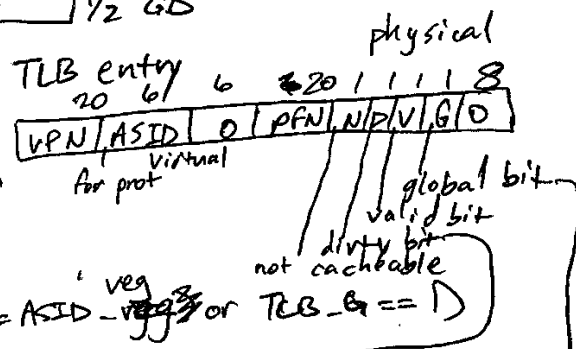 1/2 GB
physical
TLB entry
20 6 6 20 1 1 1 1 8
VPN ASID 0 PFN N D V G 0
for prot virtual
global bit
valid bit
dirty bit
not cacheable
= ASID_reg or TLB_G ==